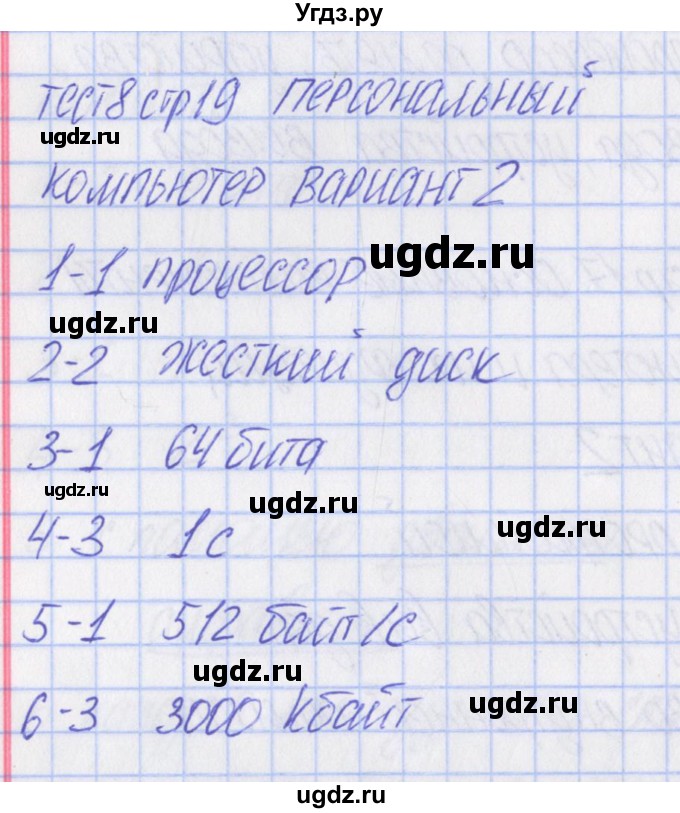 Угдз.ру
тест8 стр19 персональный
ugdz.ru
компьютер вариант 2
1-1 процессор
ugdz.ru
ugdz.ru
2-2 жесткий диск
3-1 64 бита
ugdz.ru
ugdz.ru
4-3 1с
ugdz.ru
5-1 512 байт/с
ugdz.ru
6-3 3000 Кбайт
ugdz.ru
ugdz.ru